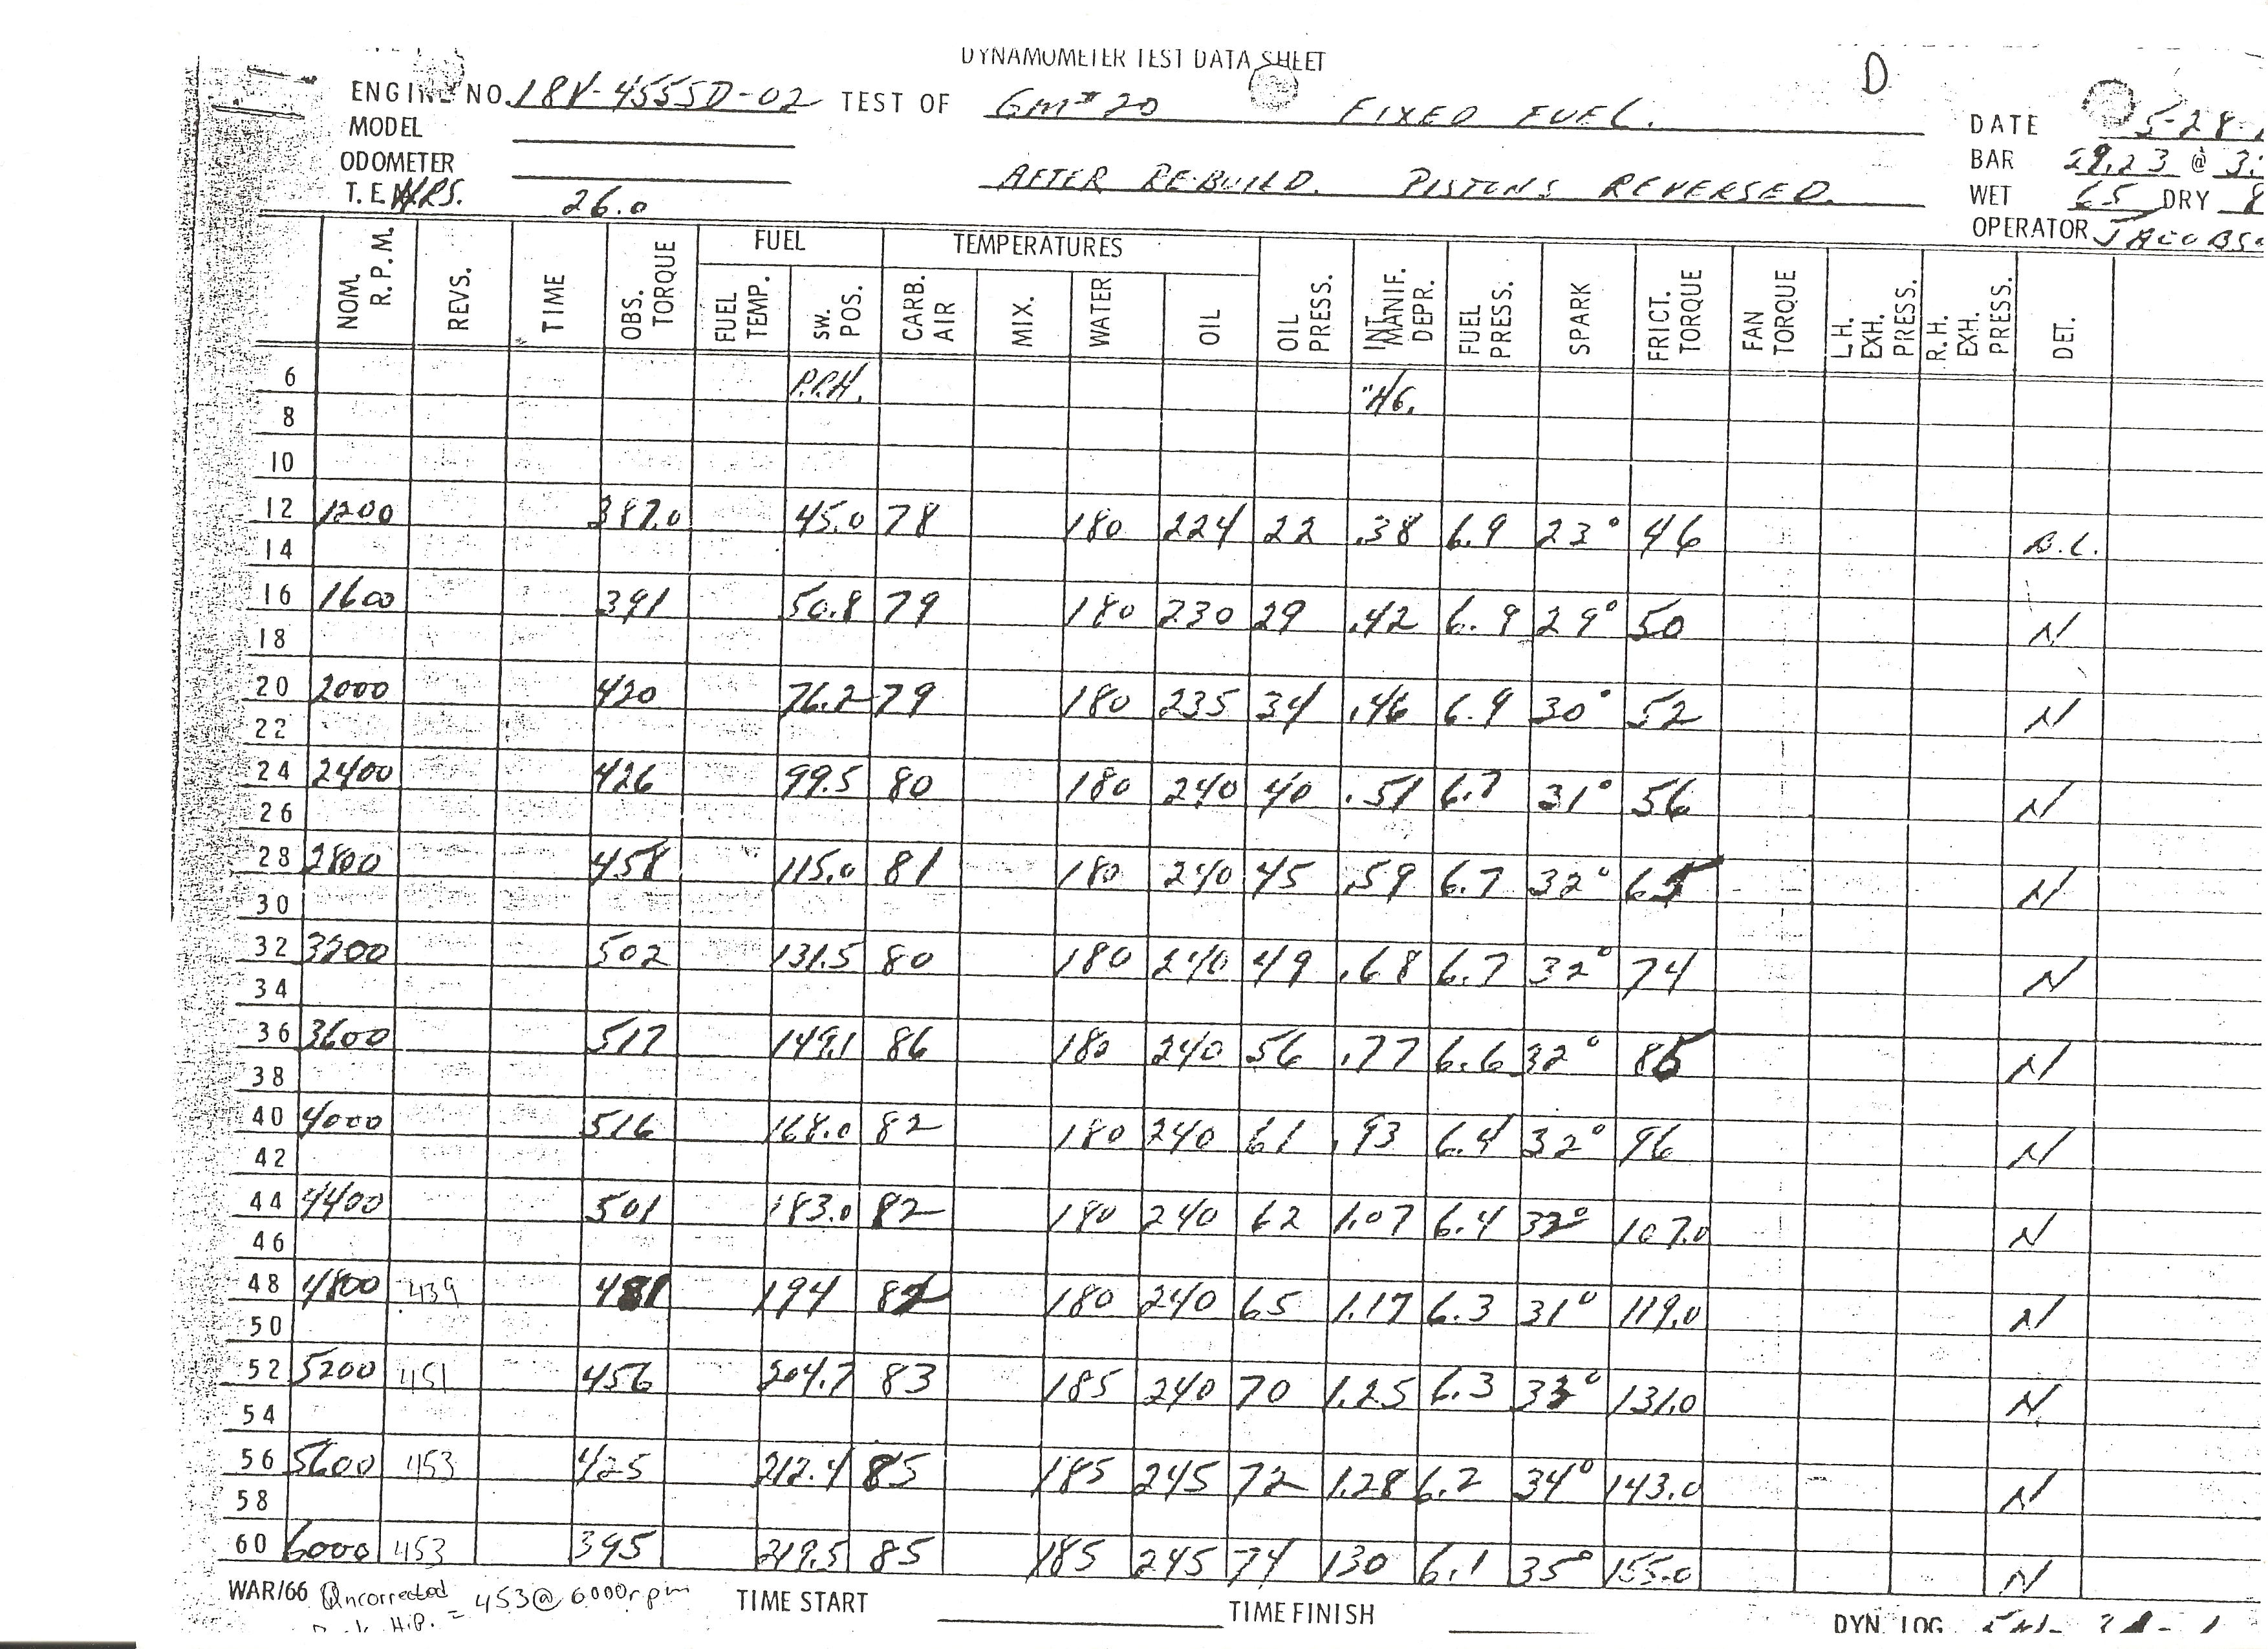 DYNAMOMETER TEST DATA SHEET
D
ENGINE NO. 18V-4555D-02 TEST OF GM#20 FIXED FUEL.
DATE 5-28-
MODEL
BAR 29.23 @ 3:
ODOMETER
AFTER REBUILD. PISTONS REVERSED.
WET 65 DRY 8
T.E. HRS. 26.0
OPERATOR JACOBSO
NOM. R.P.M. REVS. TIME OBS. TORQUE FUEL FUEL TEMP. SW. POS. TEMPERATURES CARB. AIR MIX. WATER OIL OIL PRESS. INT. MANIF. DEPR. FUEL PRESS. SPARK FRICT. TORQUE FAN TORQUE L.H. EXH. PRESS. R.H. EXH. PRESS. DET.
6 P.P.H. "HG.
8
10
12 1200 387.0 45.0 78 180 224 22 .38 6.9 23° 46 B.L.
14
16 1600 391 50.8 79 180 230 29 .42 6.9 29° 50 N
18
20 2000 420 76.2 79 180 235 34 .46 6.9 30° 52 N
22
24 2400 426 99.5 80 180 240 40 .51 6.7 31° 56 N
26
28 2800 458 115.0 81 180 240 45 .59 6.7 32° 65 N
30
32 3200 502 131.5 80 180 240 49 .68 6.7 32° 74 N
34
36 3600 517 149.1 86 180 240 56 .77 6.6 32° 85 N
38
40 4000 516 168.0 82 180 240 61 .93 6.4 32° 96 N
42
44 4400 501 183.0 82 180 240 62 1.07 6.4 32° 107.0 N
46
48 4800 439 481 194 82 180 240 65 1.17 6.3 31° 119.0 N
50
52 5200 451 456 204.7 83 185 240 70 1.25 6.3 33° 131.0 N
54
56 5600 453 425 212.4 85 185 245 72 1.28 6.2 34° 143.0 N
58
60 6000 453 395 219.5 85 185 245 74 130 6.1 35° 155.0 N
WAR/66 Uncorrected = 453 @ 6000rpm TIME START TIME FINISH
H.P.
DYN. LOG